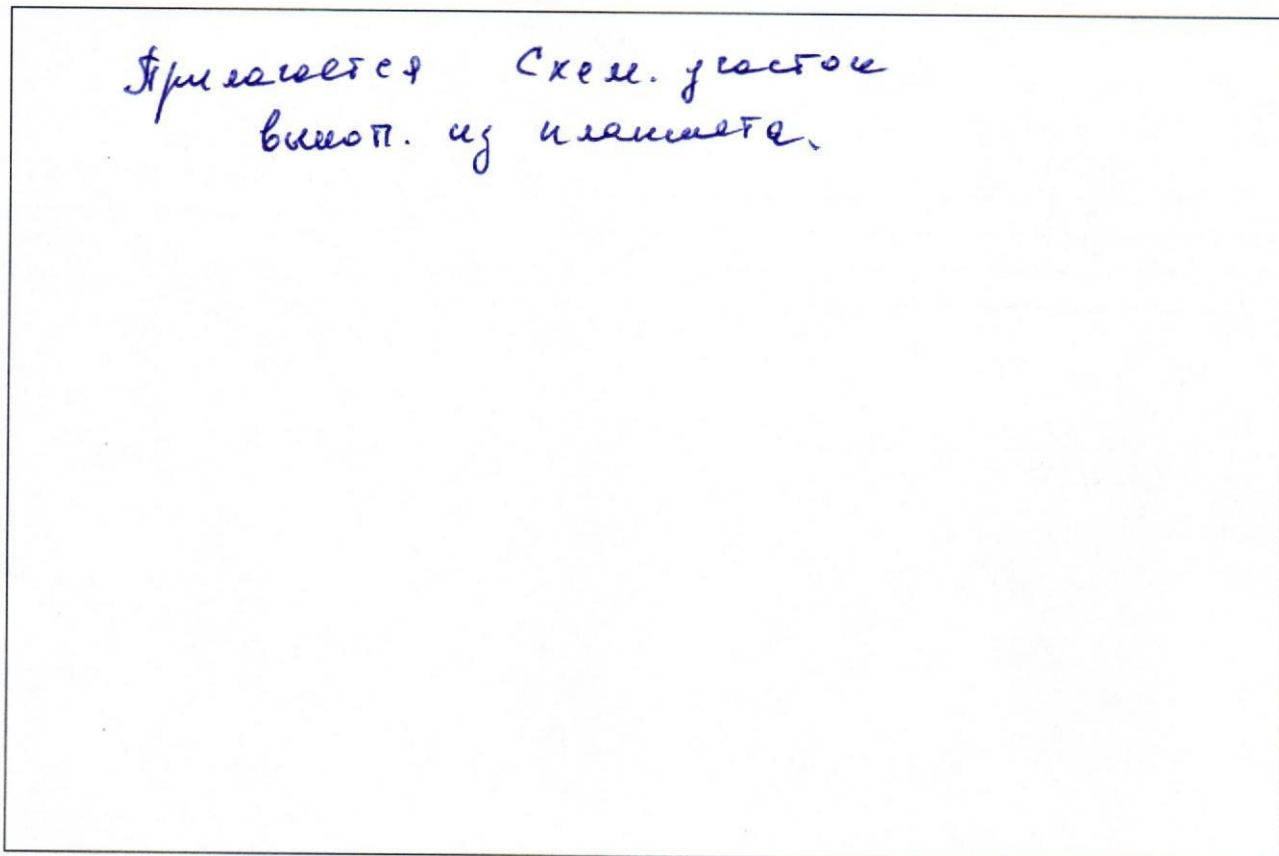 Прилагается Схем. участок
выкоп. из планшета.